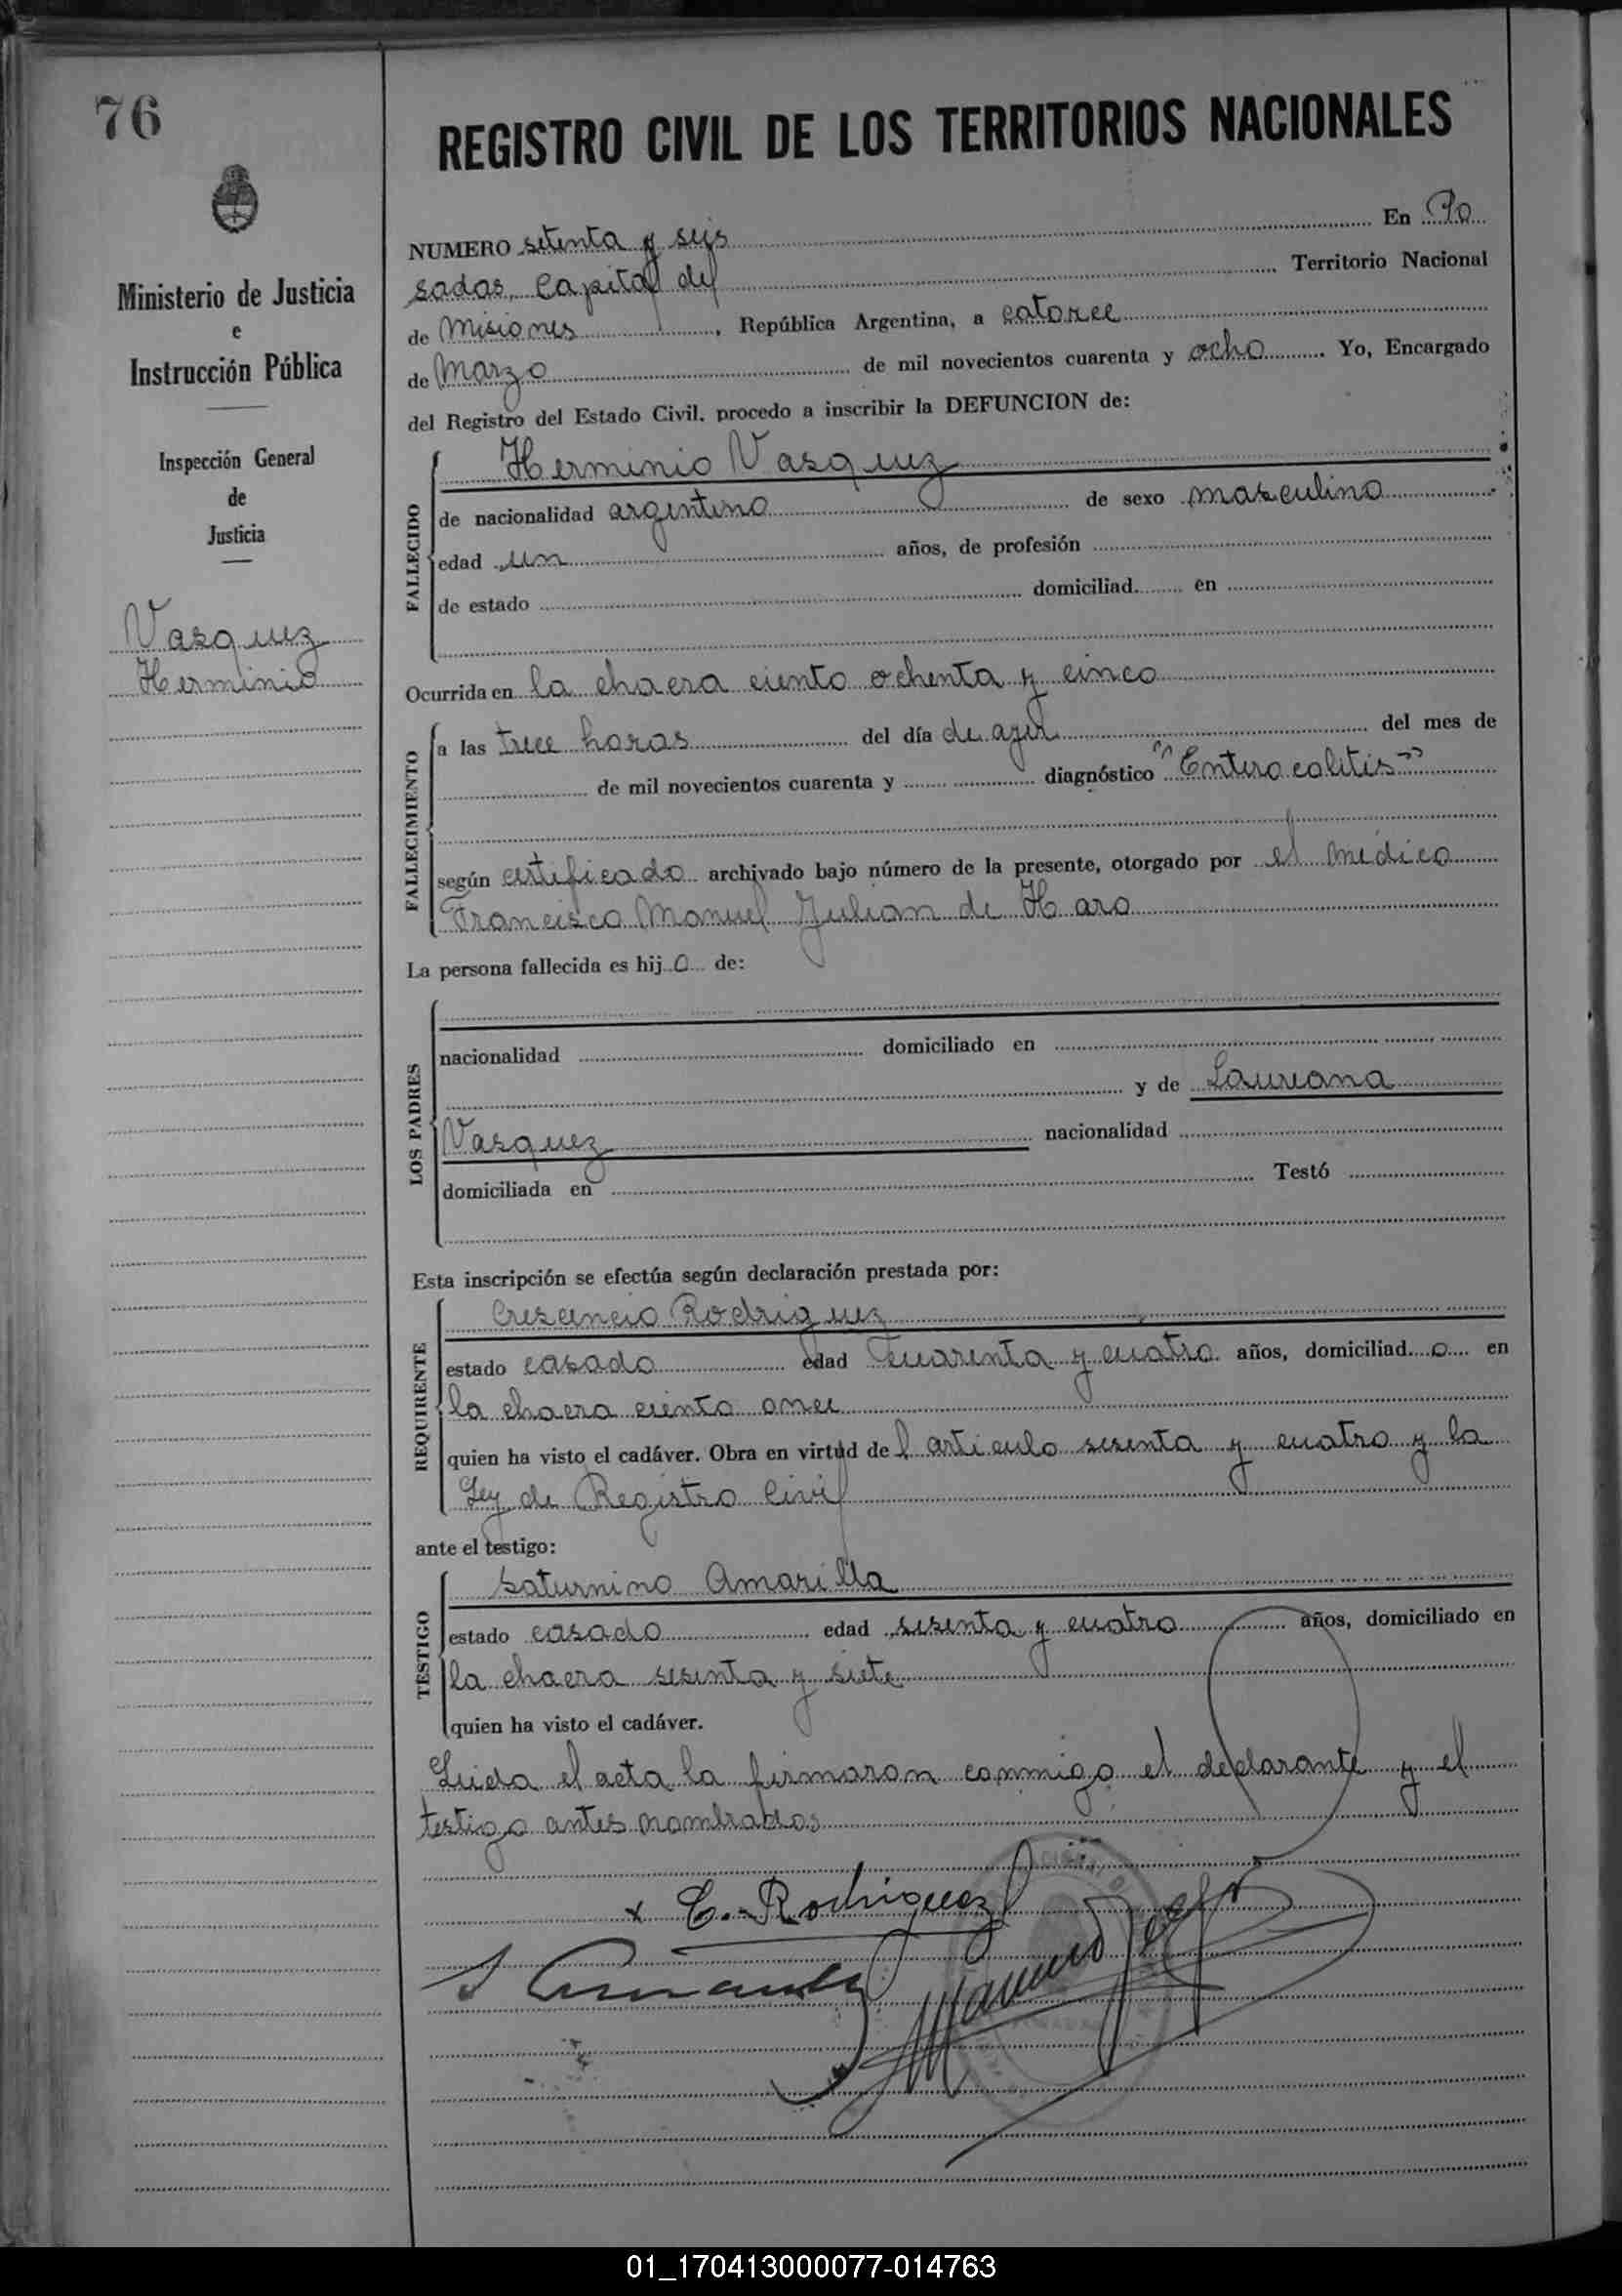 76
REGISTRO CIVIL DE LOS TERRITORIOS NACIONALES
Ministerio de Justicia
e
Instrucción Pública
Inspección General
de
Justicia
Vasquez
Herminio
NUMERO setenta y seis En Po
sadas, Capital del Territorio Nacional
de Misiones, República Argentina, a catorce
de Marzo de mil novecientos cuarenta y ocho Yo, Encargado
del Registro del Estado Civil. procedo a inscribir la DEFUNCION de:
FALLECIDO
Herminio Vasquez
de nacionalidad argentino de sexo masculino
edad un años, de profesión
de estado domiciliad en
Ocurrida en la chacra ciento ochenta y cinco
FALLECIMIENTO
a las trece horas del día de ayer del mes de
de mil novecientos cuarenta y diagnóstico "Enterocolitis"
según certificado archivado bajo número de la presente, otorgado por el médico
Francisco Manuel Julian de Haro
La persona fallecida es hijo de:
LOS PADRES
nacionalidad domiciliado en
y de Laureana
Vasquez nacionalidad
domiciliada en Testó
Esta inscripción se efectúa según declaración prestada por:
REQUIRENTE
Crescencio Rodriguez
estado casado edad cuarenta y cuatro años, domiciliado en
la chacra ciento once
quien ha visto el cadáver. Obra en virtud del articulo sesenta y cuatro y la
Ley de Registro Civil
ante el testigo:
TESTIGO
Saturnino Amarilla
estado casado edad sesenta y cuatro años, domiciliado en
la chacra sesenta y siete
quien ha visto el cadáver.
Leida el acta la firmaron conmigo el declarante y el
testigo antes nombrados
x C. Rodriguez
01_170413000077-014763